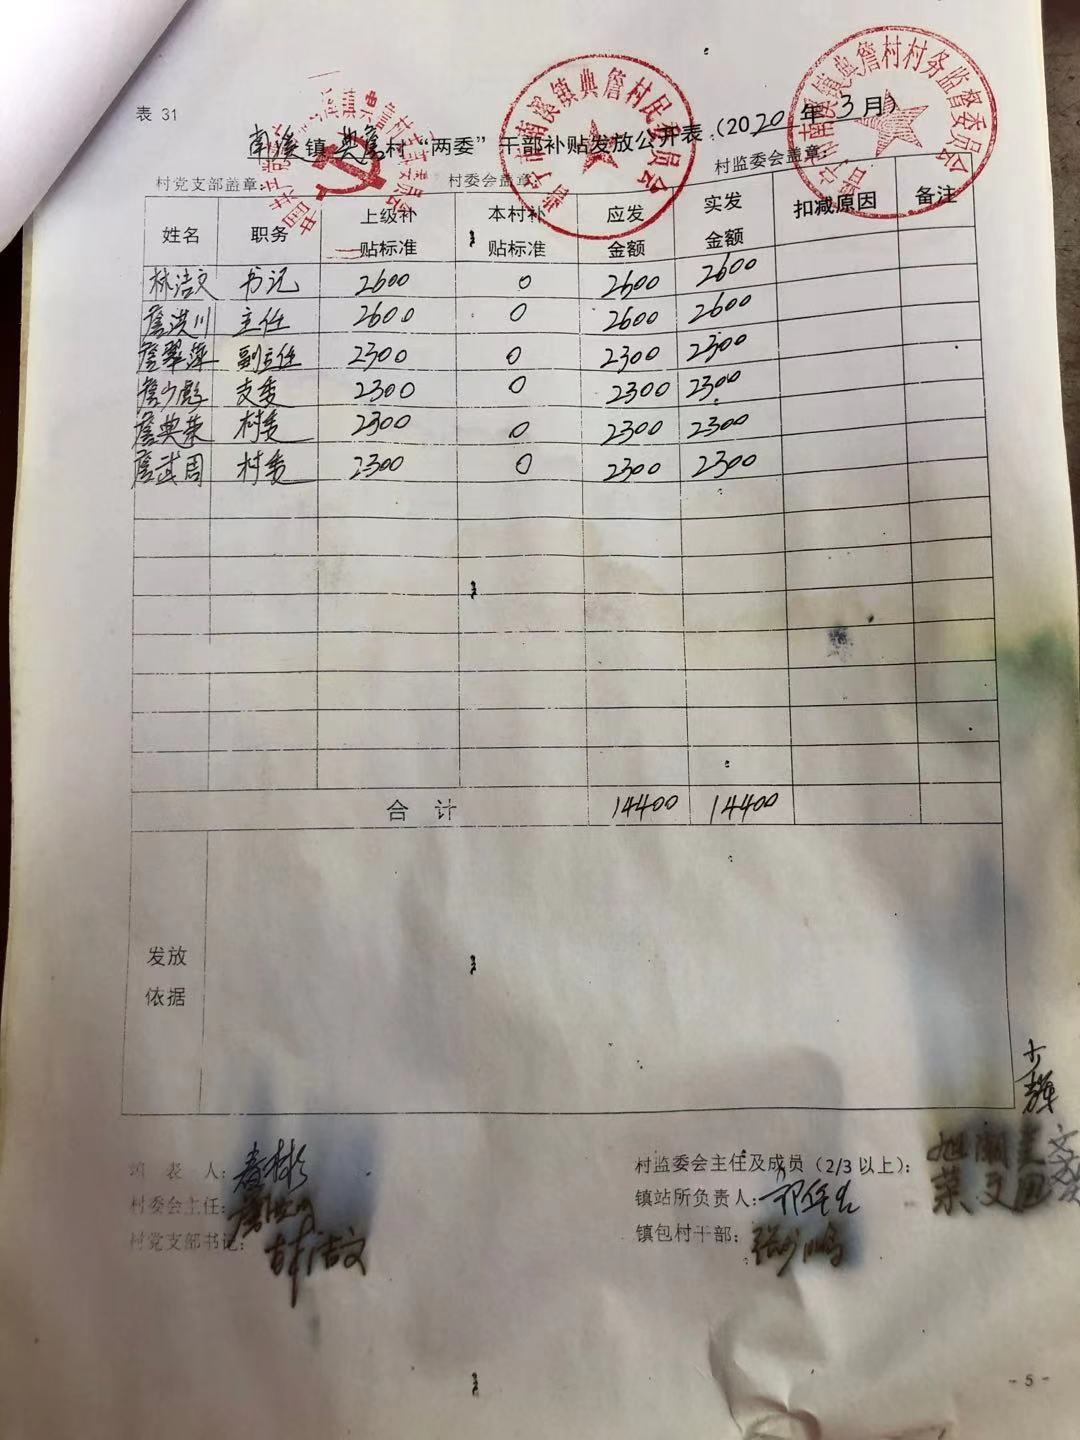 表 31
南溪镇典詹村“两委”干部补贴发放公开表 (2020年3月)
村党支部盖章: 村委会盖章: 村监委会盖章:
普宁市南溪镇典詹村民委员会
普宁市南溪镇典詹村村务监督委员会
姓名 职务 上级补贴标准 本村补贴标准 应发金额 实发金额 扣减原因 备注
林洁文 书记 2600 0 2600 2600
詹洪川 主任 2600 0 2600 2600
詹翠萍 副主任 2300 0 2300 2300
詹少彪 支委 2300 0 2300 2300
詹典荣 村委 2300 0 2300 2300
詹武周 村委 2300 0 2300 2300
合 计 14400 14400
发放依据
填 表 人: 春彬
村委会主任:
村党支部书记: 林洁文
村监委会主任及成员 (2/3 以上):
镇站所负责人:
镇包村干部:
- 5 -